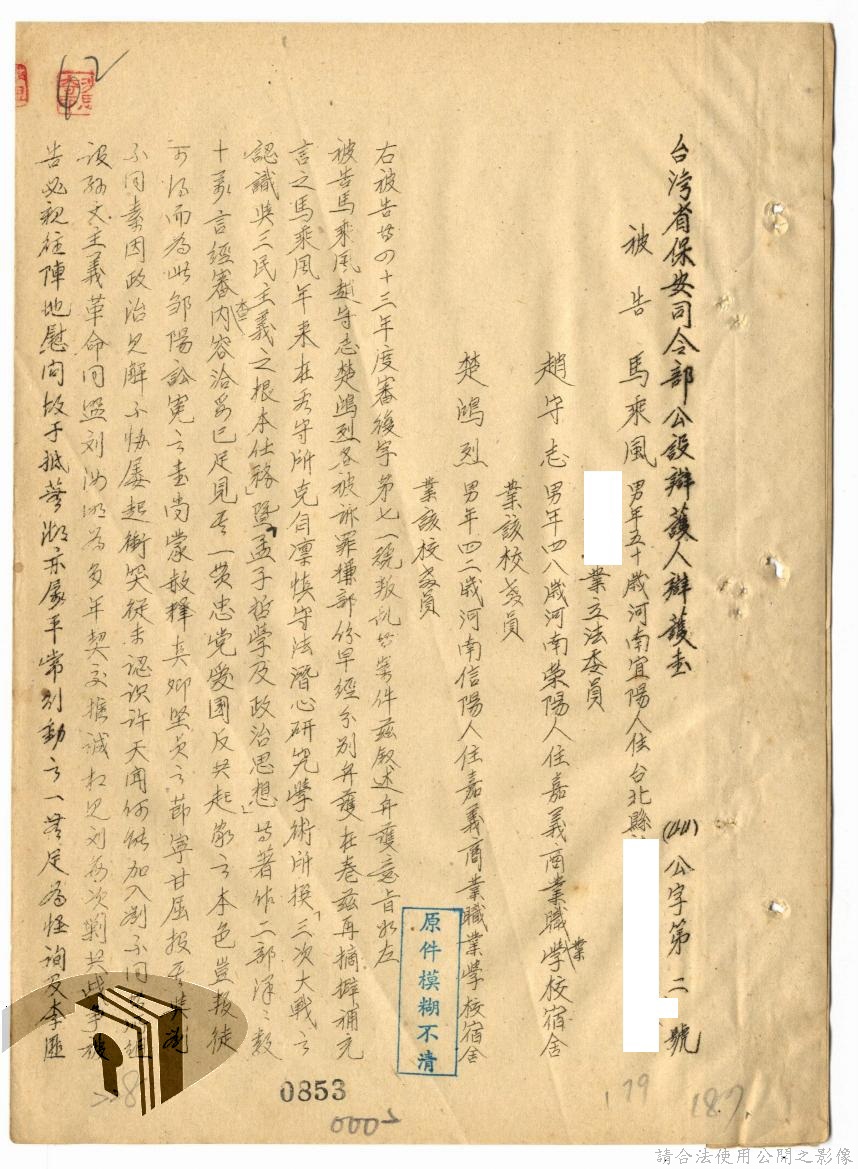 台湾省保安司令部公設辯護人辯護書 (44)公字第二 號
被告 馬乘風 男年五十歲河南宜陽人住台北縣
業立法委員
趙守志 男年四八歲河南榮陽人住嘉義商業職業學校宿舍
業該校教員
楚鴻烈 男年四二歲河南信陽人住嘉義商業職業學校宿舍
業該校教員
右被告等四十三年度審復字第七一號叛乱等案件茲叙述弁護意旨如左
被告馬乘風趙守志楚鴻烈各被訴罪嫌部份早經分别弁護在卷茲再摘辯補充
言之馬乘風年來在看守所克自凜慎守法潛心研究學術所撰「三次大戰之
認識與三民主義之根本任務」暨「孟子哲學及政治思想」等著作二部洋々數
十萬言經審查内容洽當已足見其一貫忠党愛國反共起家之本色豈叛徒
可得而為此鄒陽訟冤之書尚蒙赦釋真卿堅贞之節寧甘屈
不同素因政治見解不恊屢起衝突從未認识许天闻何能加入
设孙文主義革命同盟刘 為多年契交 诚 见刘 次剿共
告必親往陣地慰问故于抵蕪湖亦屬平常行動之一無足為怪詢及李匪
原件模糊不清
0853
179
187
請合法使用公開之影像